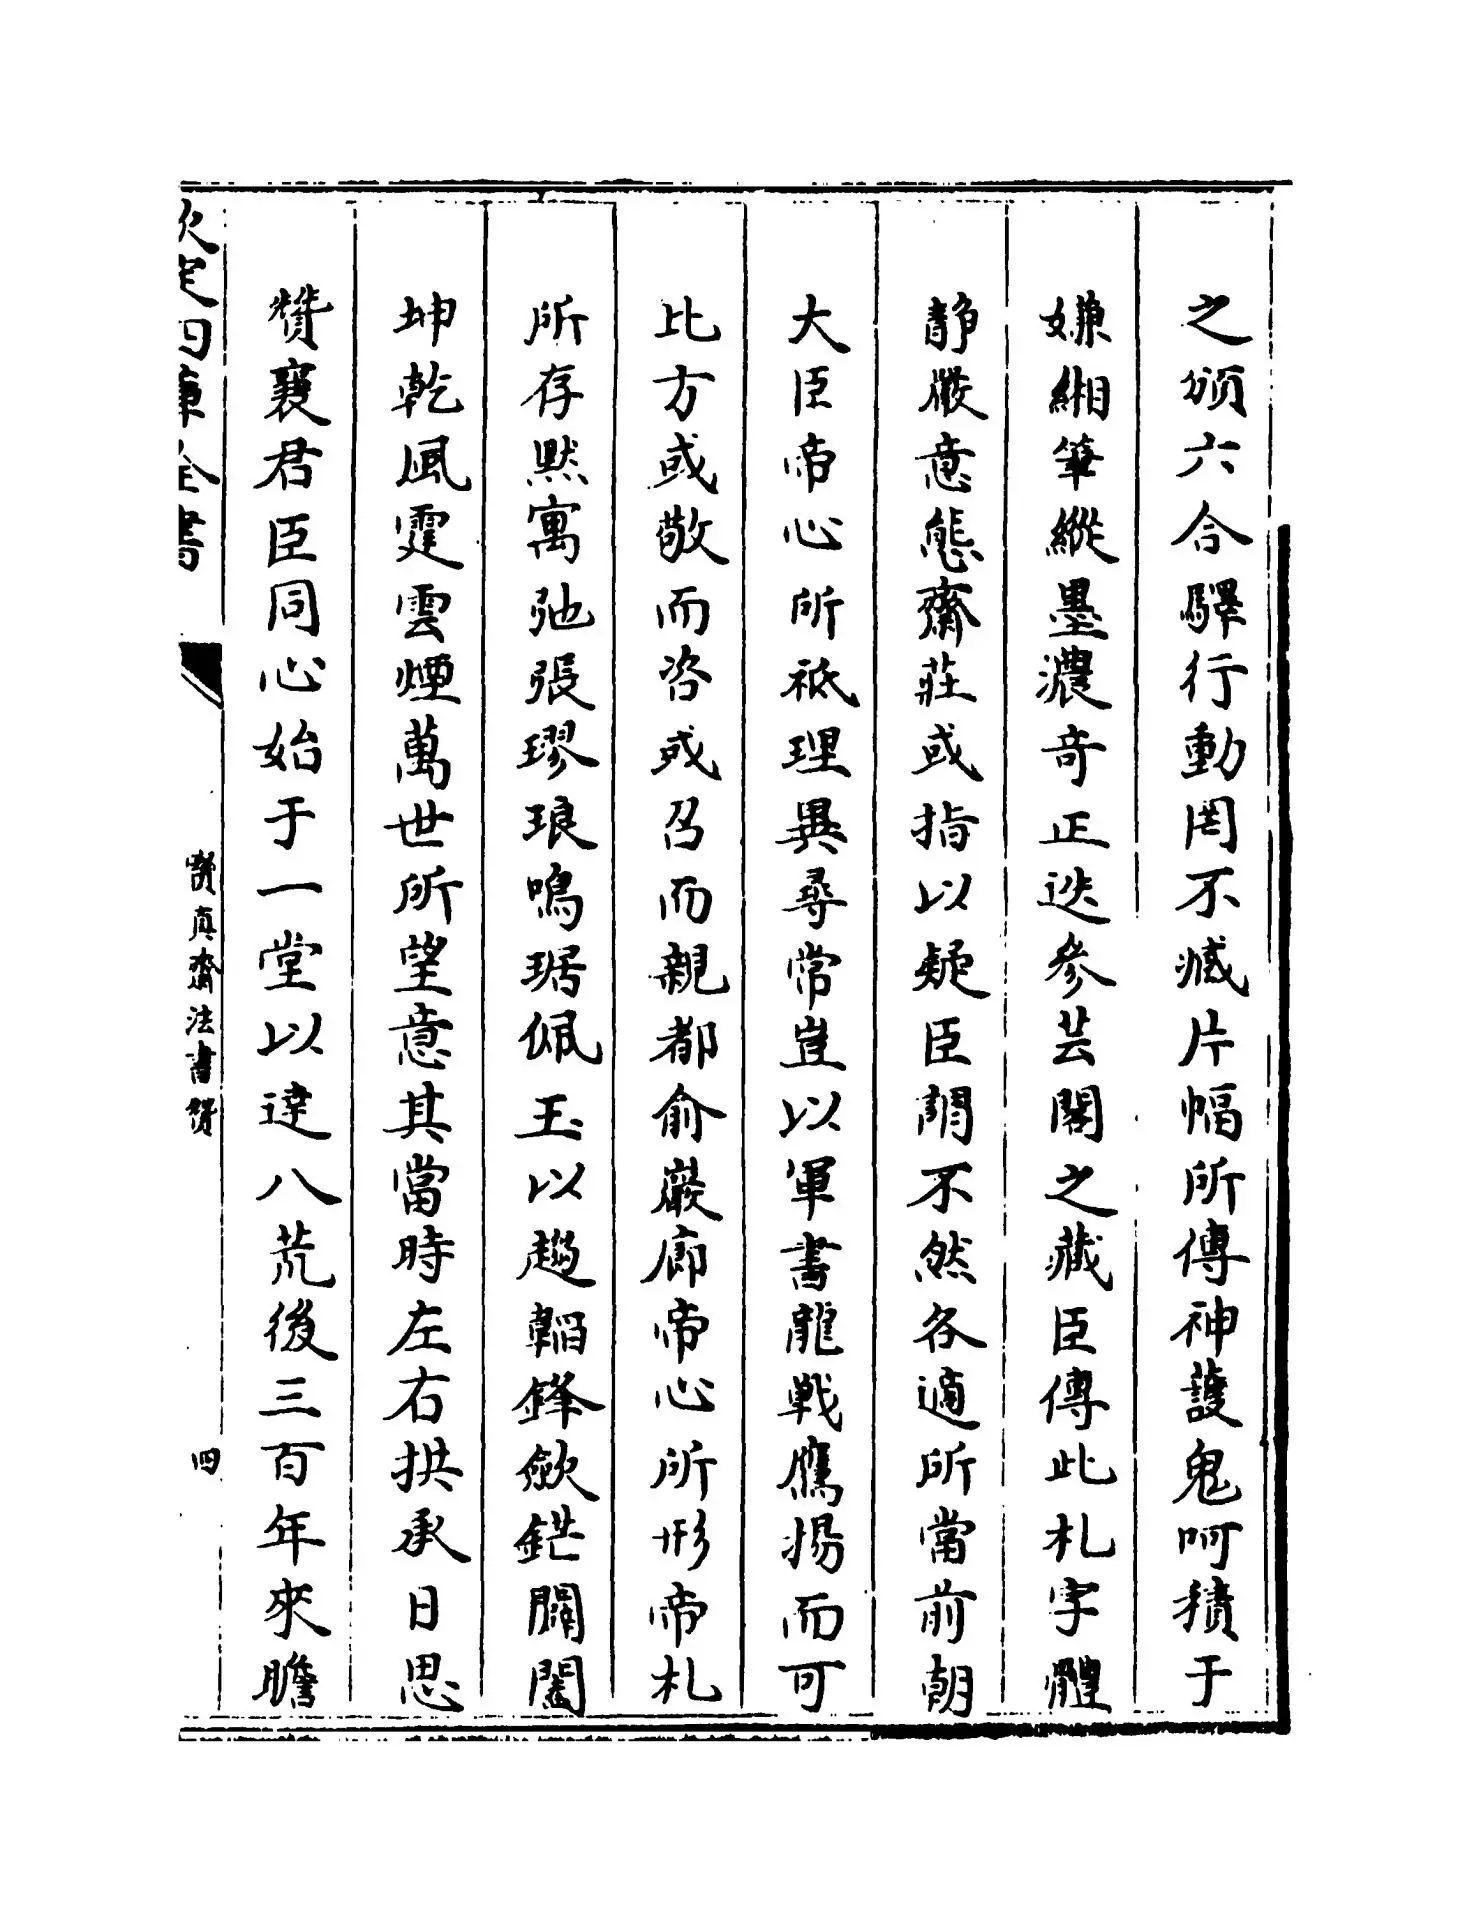 之頒六合驛行動罔不臧片幅所傳神護鬼呵積于
嫌緗筆縱墨濃奇正迭參芸閣之藏臣傳此札字體
靜嚴意態齋莊或指以疑臣謂不然各適所當前朝
大臣帝心所祗理異尋常豈以軍書龍戰鷹揚而可
比方或敬而咨或召而親都俞巖廊帝心所形帝札
所存默寓弛張璆琅鳴琚佩玉以趨韜鋒斂鋩闢闔
坤乾風霆雲煙萬世所望意其當時左右拱承日思
贊襄君臣同心始于一堂以達八荒後三百年來瞻
欽定四庫全書
寶真齋法書贊
四